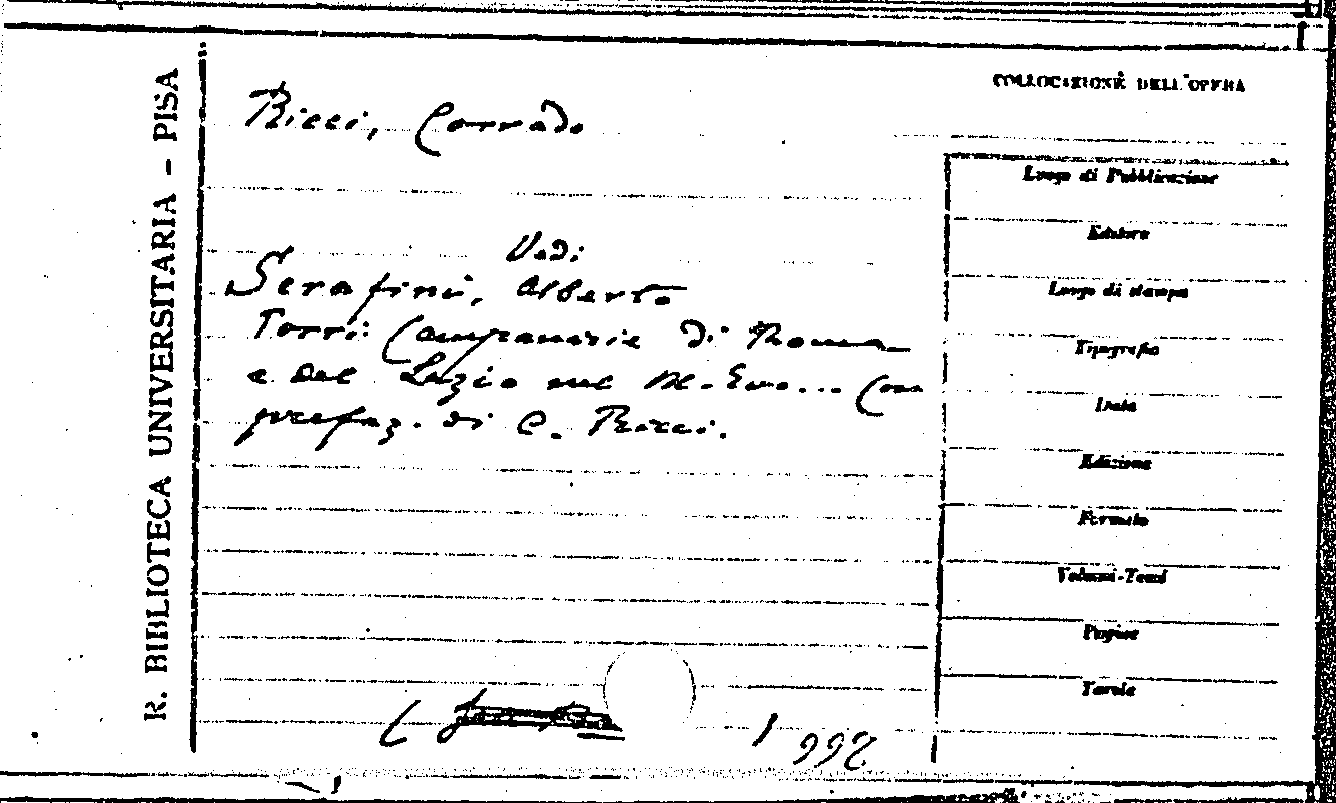 R. BIBLIOTECA UNIVERSITARIA – PISA
COLLOCAZIONE DELL'OPERA
Ricci, Corrado
Vedi
Serafini, Alberto
Torri Campanarie di Roma
e del Lazio nel M. Evo... Con
prefaz. di C. Ricci.
Luogo di Pubblicazione
Editore
Luogo di stampa
Tipografia
Data
Edizione
Formato
Volumi-Tomi
Pagine
Tavole
992